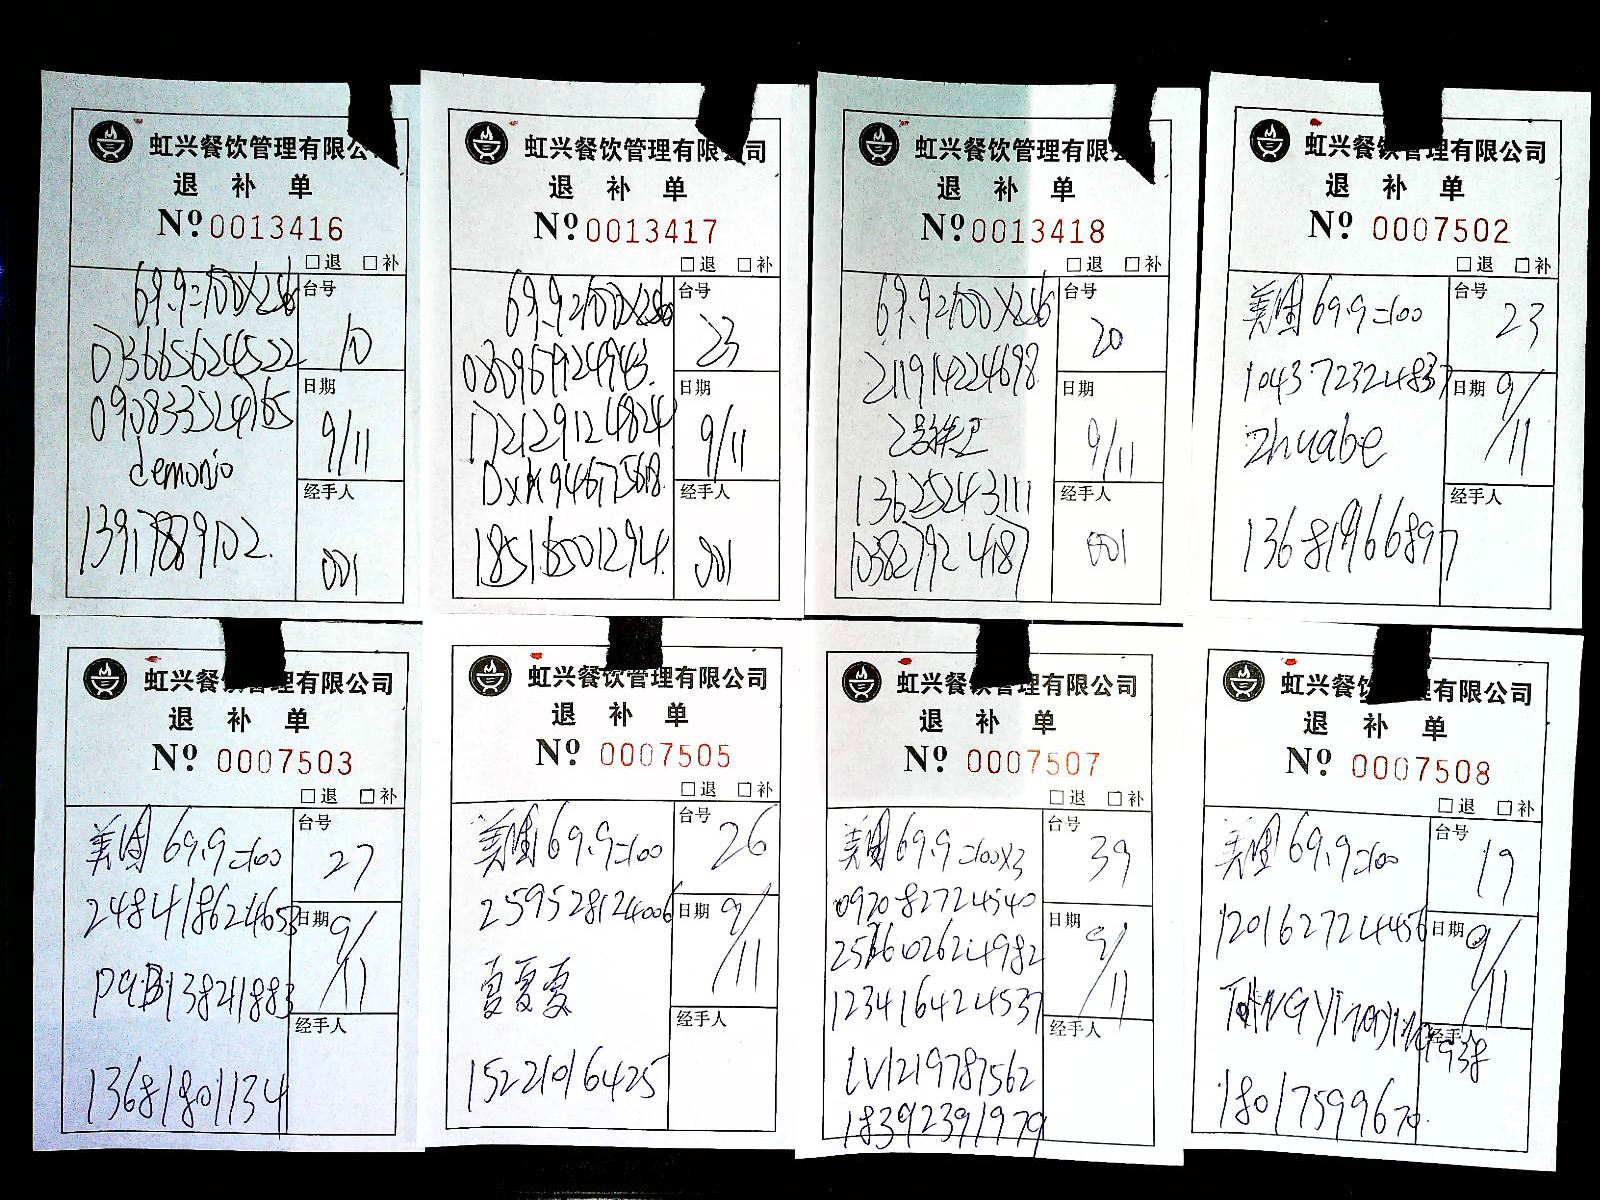 虹兴餐饮管理有限公司
退 补 单
Nº 0013416
□退 □补
69.9=100×2
台号
10
03665624522
日期
9/11
090833524765
demonio
经手人
001
13917889102
虹兴餐饮管理有限公司
退 补 单
Nº 0013417
□退 □补
台号
23
日期
9/11
经手人
001
18516001294
虹兴餐饮管理有限公司
退 补 单
Nº 0013418
□退 □补
台号
20
211914224698
日期
9/11
13625243111
经手人
001
103827924187
虹兴餐饮管理有限公司
退 补 单
Nº 0007502
□退 □补
美团 69.9=100
台号
23
104372324837
日期
9/11
zhuabe
经手人
13681966897
虹兴餐饮管理有限公司
退 补 单
Nº 0007503
□退 □补
美团 69.9=100
台号
27
248418624653
日期
9/11
经手人
13681801134
虹兴餐饮管理有限公司
退 补 单
Nº 0007505
□退 □补
美团 69.9=100
台号
26
259528124006
日期
9/11
夏夏夏
经手人
15221016425
虹兴餐饮管理有限公司
退 补 单
Nº 0007507
□退 □补
美团 69.9=100×3
台号
39
092082724540
日期
9/11
123416424537
经手人
LV1219787562
18392391979
虹兴餐饮管理有限公司
退 补 单
Nº 0007508
□退 □补
美团 69.9=100
台号
19
120162724456
日期
9/11
经手人
18017599670